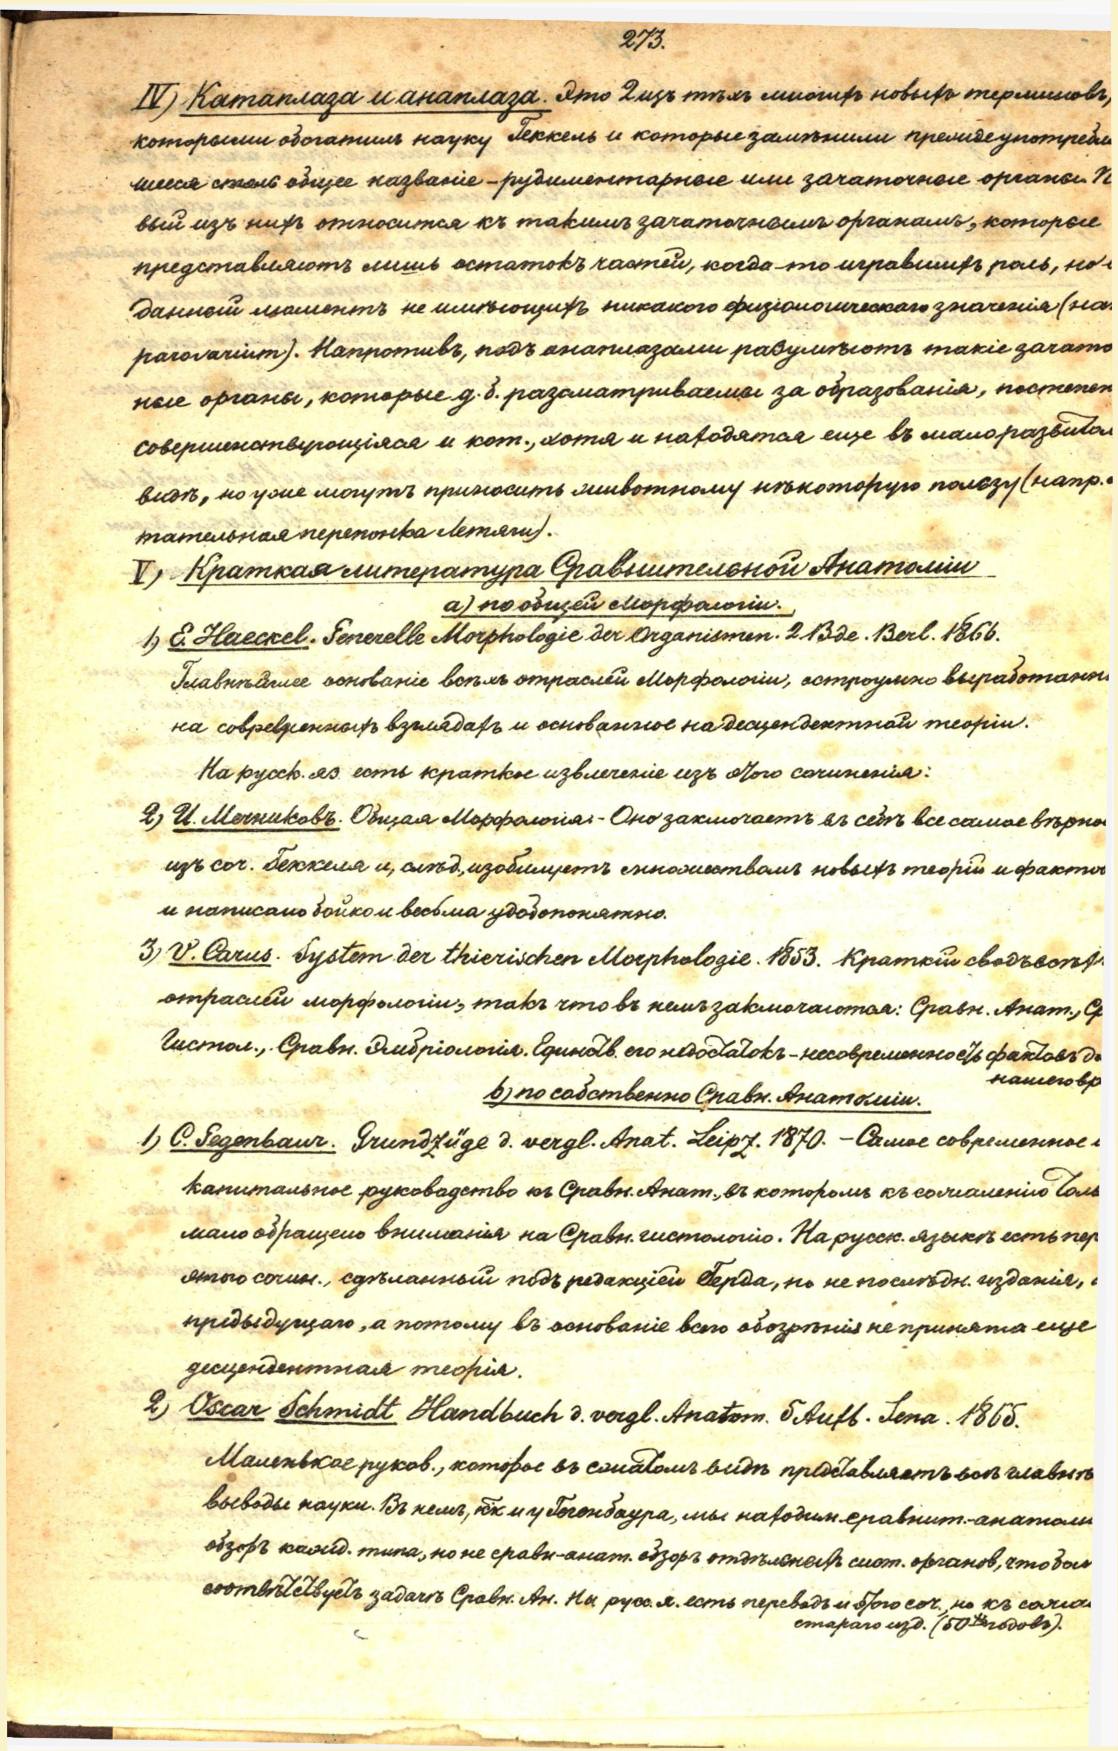 273.
IV) Катаплаза и анаплаза. Это 2 изъ тѣхъ многихъ новыхъ терминовъ,
которыми обогатилъ науку Геккель и которые замѣнили прежде употребля
шееся столь общее названіе – рудиментарные или зачаточные органы. П
вый изъ нихъ относится къ такимъ зачаточнымъ органамъ, которые
представляютъ лишь остатокъ частей, когда-то игравшихъ роль, но
данный моментъ не имѣющихъ никакого физіологическаго значенія (на
parovarium). Напротивъ, подъ анаплазами разумѣютъ такіе зачато
ные органы, которые д. б. разсматриваемы за образованія, постепен
совершенствующіяся и кот., хотя и находятся еще въ малоразвитом
видѣ, но уже могутъ приносить животному нѣкоторую пользу (напр.
тательная перепонка Летяги).
V) Краткая литература Сравнительной Анатоміи
a) по общей Морфологіи.
1) E. Haeckel. Generelle Morphologie der Organismen. 2 Bde. Berl. 1866.
Главнѣйшее основаніе всѣхъ отраслей Морфологіи, остроумно выработанн
на современныхъ взглядахъ и основанное на десцендентной теоріи.
На русск. яз есть краткое извлеченіе изъ этого сочиненія:
2) И. Мечниковъ. Общая Морфологія – Оно заключаетъ въ себѣ все самое вѣрно
изъ соч. Геккеля и, слѣд., изобилуетъ множествомъ новыхъ теорій и фактов
и написано бойко и весьма удобопонятно.
3) V. Carus. System der thierischen Morphologie. 1853. Краткій сводъ всѣхъ
отраслей морфологіи, такъ что въ немъ заключаются: Сравн. Анат., Ср
Гистол., Сравн. Эмбріологія. Единств. его недостатокъ – несовременность фактовъ д
нашего вр
b) по собственно Сравн. Анатоміи.
1) C. Gegenbaur. Grundzüge d. vergl. Anat. Leipz. 1870. – Самое современное и
капитальное руководство къ Сравн. Анат., въ которомъ къ сожалѣнію толь
мало обращено вниманія на Сравн. гистологію. На русск. языкѣ есть пер
этого сочин., сдѣланный подъ редакціей Герда, но не послѣдн. изданія,
предыдущаго, а потому въ основаніе всего обозрѣнія не принята еще
десцендентная теорія.
2) Oscar Schmidt Handbuch d. vergl. Anatom. 5 Aufl. Jena. 1865.
Маленькое руков., которое въ сжатомъ видѣ представляетъ всѣ главнѣ
выводы науки. Въ немъ, как и у Гегенбаура, мы находим сравнит.-анатоми
обзоръ кажд. типа, но не сравн-анат. обзоръ отдѣльныхъ сист. органов, что бол
соотвѣтствуетъ задачѣ Сравн. Ан. На русс. я. есть переводъ и этого соч., но къ сожа
стараго изд. (50хъ годовъ).